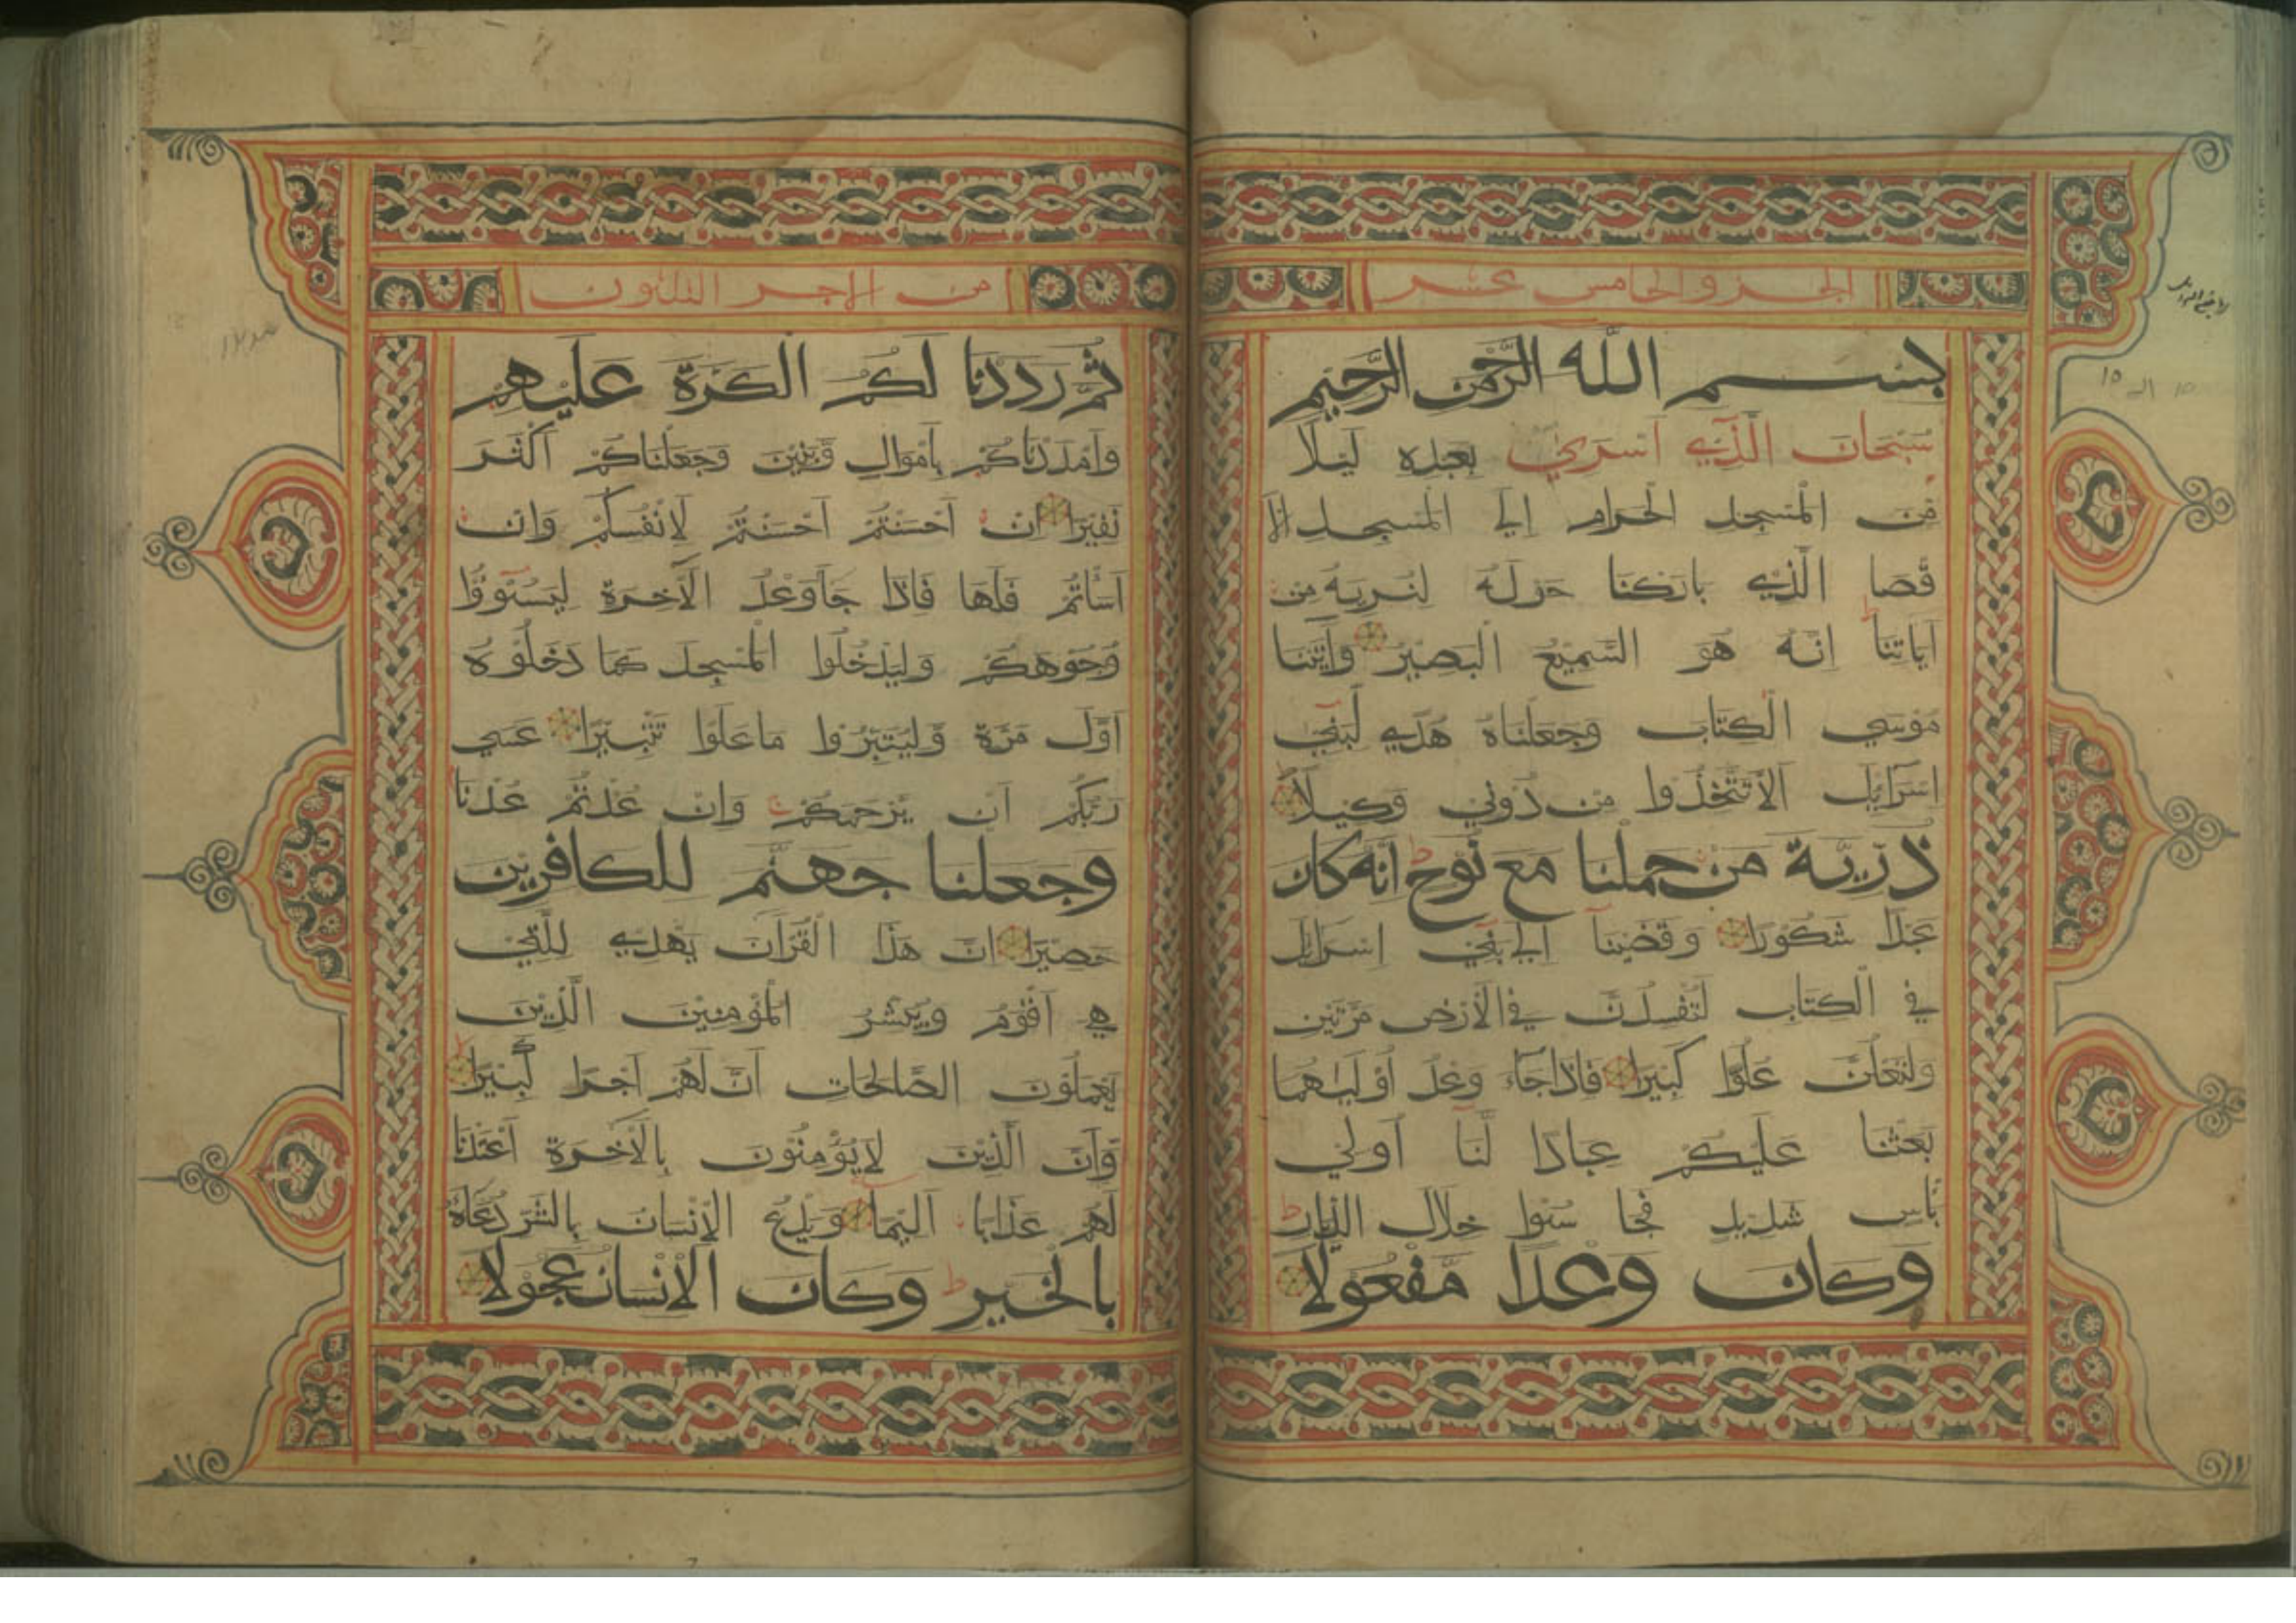 الجزو الخامس عشر
بِسْــمِ اللّٰه الرَّحْمٰنِ الرَّحِيْمِ
سُبْحَانَ الَّذِيْ اَسْرَيٰ بِعَبْدِهٖ لَيْلًا
مِّنَ الْمَسْجِدِ الْحَرَامِ اِلَي الْمَسْجِدِ الْاَ
قْصَا الَّذِيْ بَارَكْنَا حَوْلَهٗ لِنُرِيَهٗ مِنْ
اٰيَاتِنَا ط اِنَّهٗ هُوَ السَّمِيْعُ الْبَصِيْرُ وَاٰتَيْنَا
مُوْسَي الْكِتَابَ وَجَعَلْنَاهُ هُدًي لِّبَنِيْ
اِسْرَائِيْلَ اَلَّا تَتَّخِذُوْا مِنْ دُوْنِيْ وَكِيْلًا
ذُرِّيَّةَ مَنْ حَمَلْنَا مَعَ نُوْحٍ ط اِنَّهٗ كَانَ
عَبْدًا شَكُوْرًا وَقَضَيْنَا اِلٰي بَنِيْ اِسْرَائِيْلَ
فِي الْكِتَابِ لَتُفْسِدُنَّ فِي الْاَرْضِ مَرَّتَيْنِ
وَلَتَعْلُنَّ عُلُوًّا كَبِيْرًا فَاِذَا جَاءَ وَعْدُ اُوْلٰيهُمَا
بَعَثْنَا عَلَيْكُمْ عِبَادًا لَّنَا اُولِيْ
بَأْسٍ شَدِيْدٍ فَجَاسُوْا خِلَالَ الدِّيَارِ ط
وَكَانَ وَعْدًا مَّفْعُوْلًا
من الاجز الثلاثون
ثُمَّ رَدَدْنَا لَكُمُ الْكَرَّةَ عَلَيْهِمْ
وَاَمْدَدْنَاكُمْ بِاَمْوَالٍ وَّبَنِيْنَ وَجَعَلْنَاكُمْ اَكْثَرَ
نَفِيْرًا اِنْ اَحْسَنْتُمْ اَحْسَنْتُمْ لِاَنْفُسِكُمْ وَاِنْ
اَسَأْتُمْ فَلَهَا فَاِذَا جَا وَعْدُ الْاٰخِرَةِ لِيَسُوْٓءٗا
وُجُوْهَكُمْ وَلِيَدْخُلُوا الْمَسْجِدَ كَمَا دَخَلُوْهُ
اَوَّلَ مَرَّةٍ وَّلِيُتَبِّرُوْا مَا عَلَوْا تَتْبِيْرًا عَسٰي
رَبُّكُمْ اَنْ يَّرْحَمَكُمْ ج وَاِنْ عُدْتُّمْ عُدْنَا
وَجَعَلْنَا جَهَنَّمَ لِلْكَافِرِيْنَ
حَصِيْرًا اِنَّ هٰذَا الْقُرْاٰنَ يَهْدِيْ لِلَّتِيْ
هِيَ اَقْوَمُ وَيُبَشِّرُ الْمُؤْمِنِيْنَ الَّذِيْنَ
يَعْمَلُوْنَ الصَّالِحَاتِ اَنَّ لَهُمْ اَجْرًا كَبِيْرًا
وَّاَنَّ الَّذِيْنَ لَا يُؤْمِنُوْنَ بِالْاٰخِرَةِ اَعْتَدْنَا
لَهُمْ عَذَابًا اَلِيْمًا وَيَدْعُ الْاِنْسَانُ بِالشَّرِّ دُعَاءَهٗ
بِالْخَيْرِ ط وَكَانَ الْاِنْسَانُ عَجُوْلًا